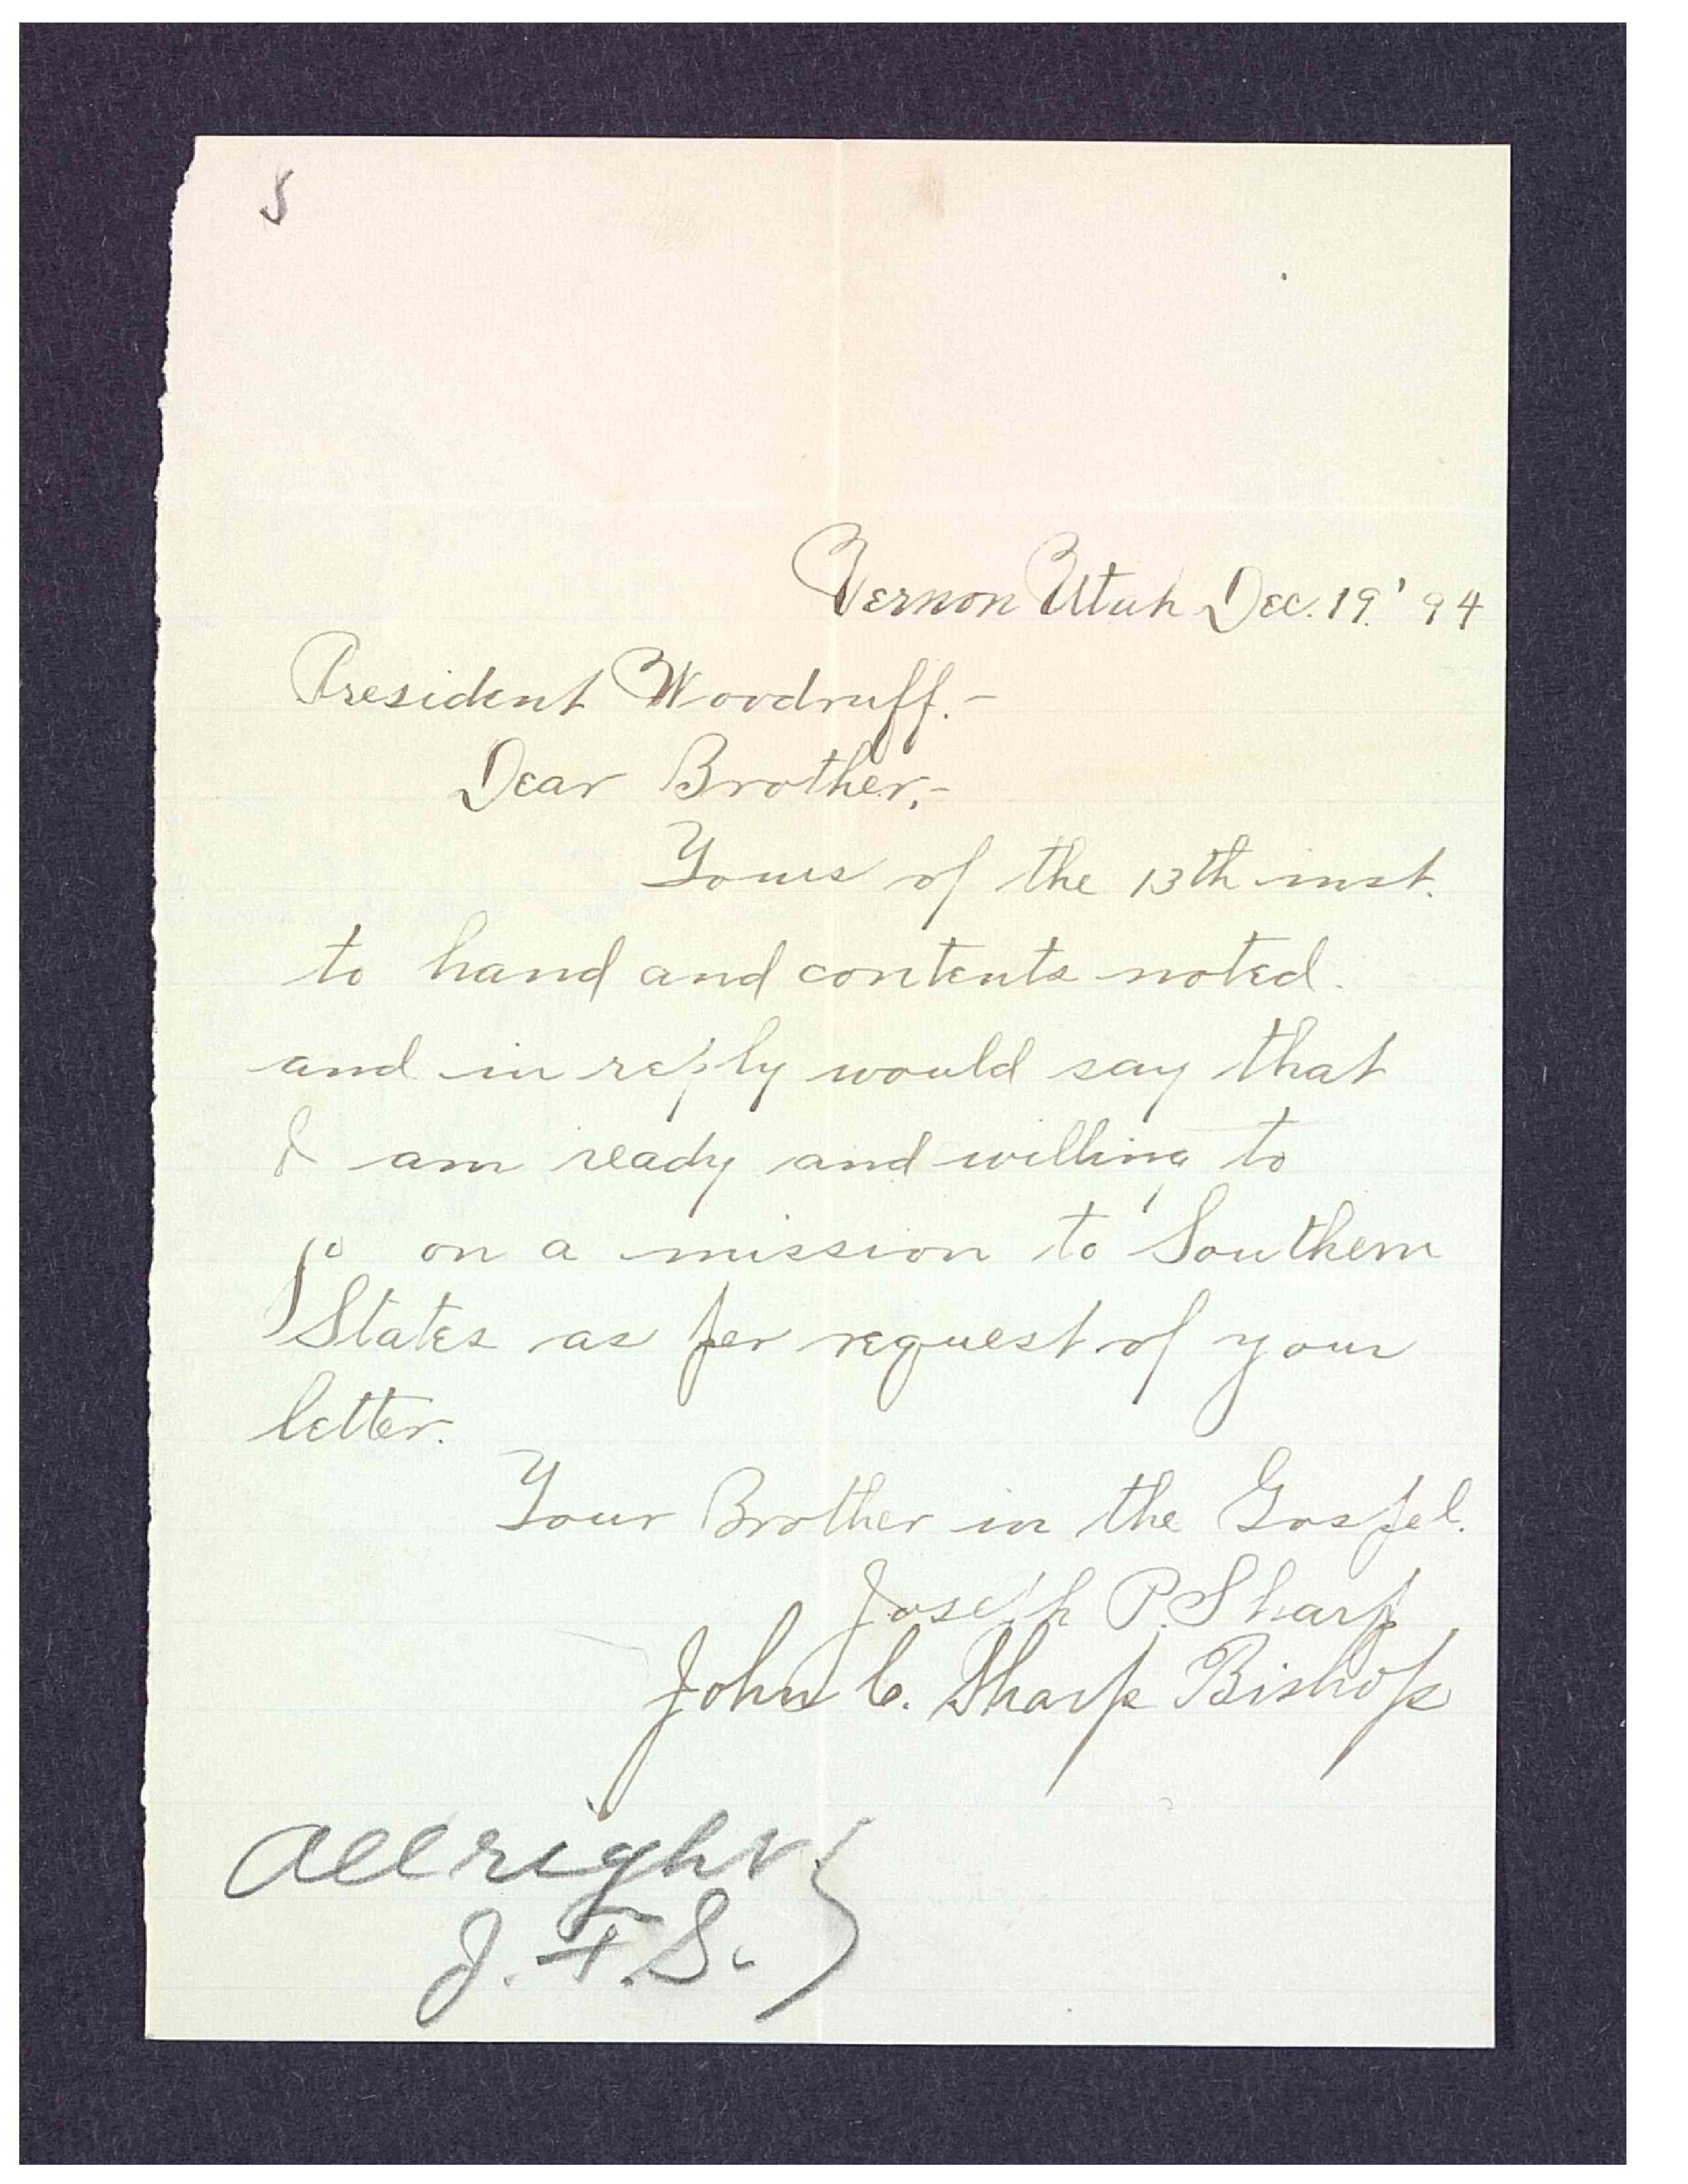 S
Vernon Utah Dec. 19.' 94
President Woodruff.-
Dear Brother,-
Yours of the 13th inst.
to hand and contents noted.
and in reply would say that
I am ready and willing to
go on a mission to Southern
States as per request of your
letter.
Your Brother in the Gospel.
Joseph P. Sharp
John C. Sharp Bishop
All right
J. F. S.